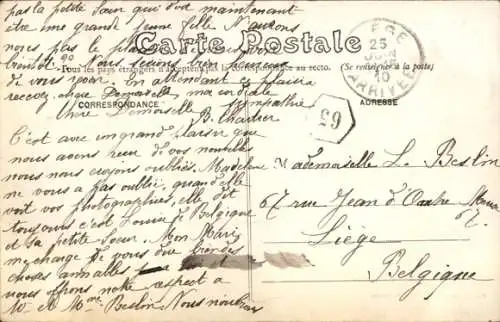 pas la petite Sœur qui doit maintenant
être une grande jeune fille N'aurons
nous pas le plaisir
Nous serions bien heureux
de vous voir. En attendant ce plaisir
recevez chère Demoiselle ma cordiale
sympathie
B. Chartier
Carte Postale
Tous les pays étrangers n'acceptent pas la correspondance au recto. (Se renseigner à la poste)
CORRESPONDANCE
ADRESSE
LIEGE
25
JUIN
10
ARRIVÉE
69
Chère Demoiselle
C'est avec un grand plaisir que
nous avons reçu de vos nouvelles
nous nous croyons oubliés. Madeleine
ne vous a pas oublié, quand elle
voit vos photographies, elle dit
toujours c'est Louise de Belgique
et sa petite Sœur. Mon Mari
me charge de vous dire bien des
choses aimables
vous offrons notre respect à
Mr et Mme Beslin. Nous
Mademoiselle L. Beslin
67 rue Jean d'Outre Meuse
67.
Liège
Belgique